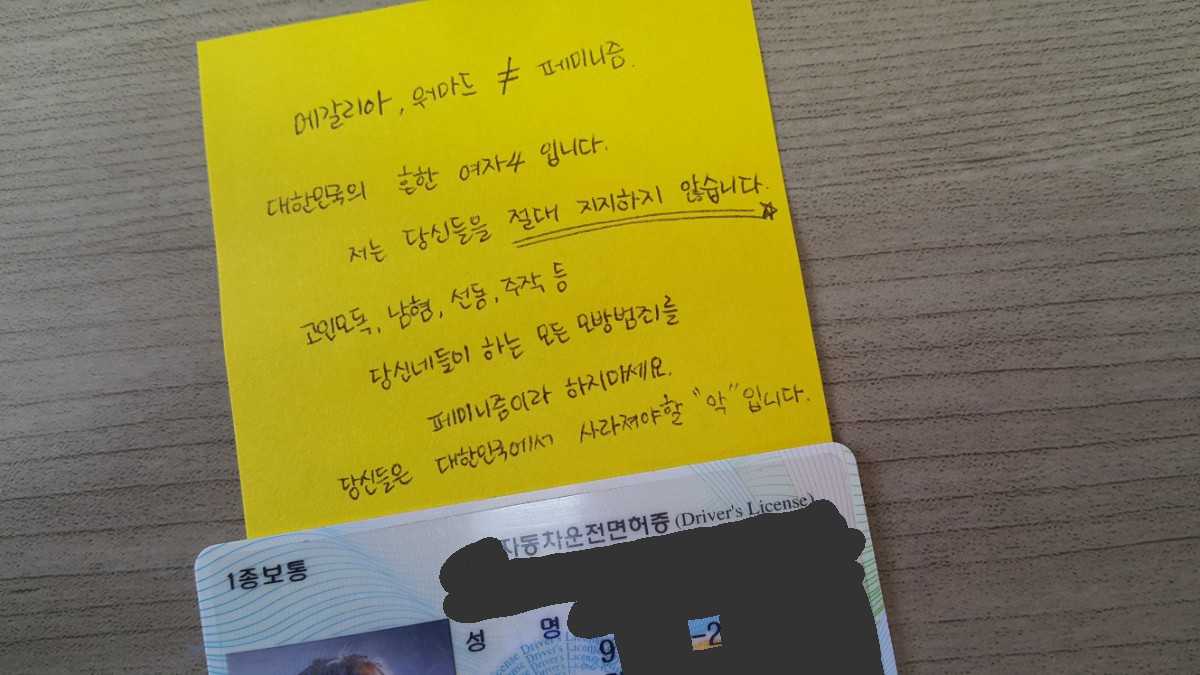 메갈리아, 워마드 ≠ 페미니즘.
대한민국의 흔한 여자4 입니다.
저는 당신들을 절대 지지하지 않습니다.
고인모독, 남혐, 선동, 주작 등
당신네들이 하는 모든 모방범죄를
페미니즘이라 하지마세요.
당신들은 대한민국에서 사라져야할 "악"입니다.
자동차운전면허증 (Driver's License)
1종보통
성 명
9 -2